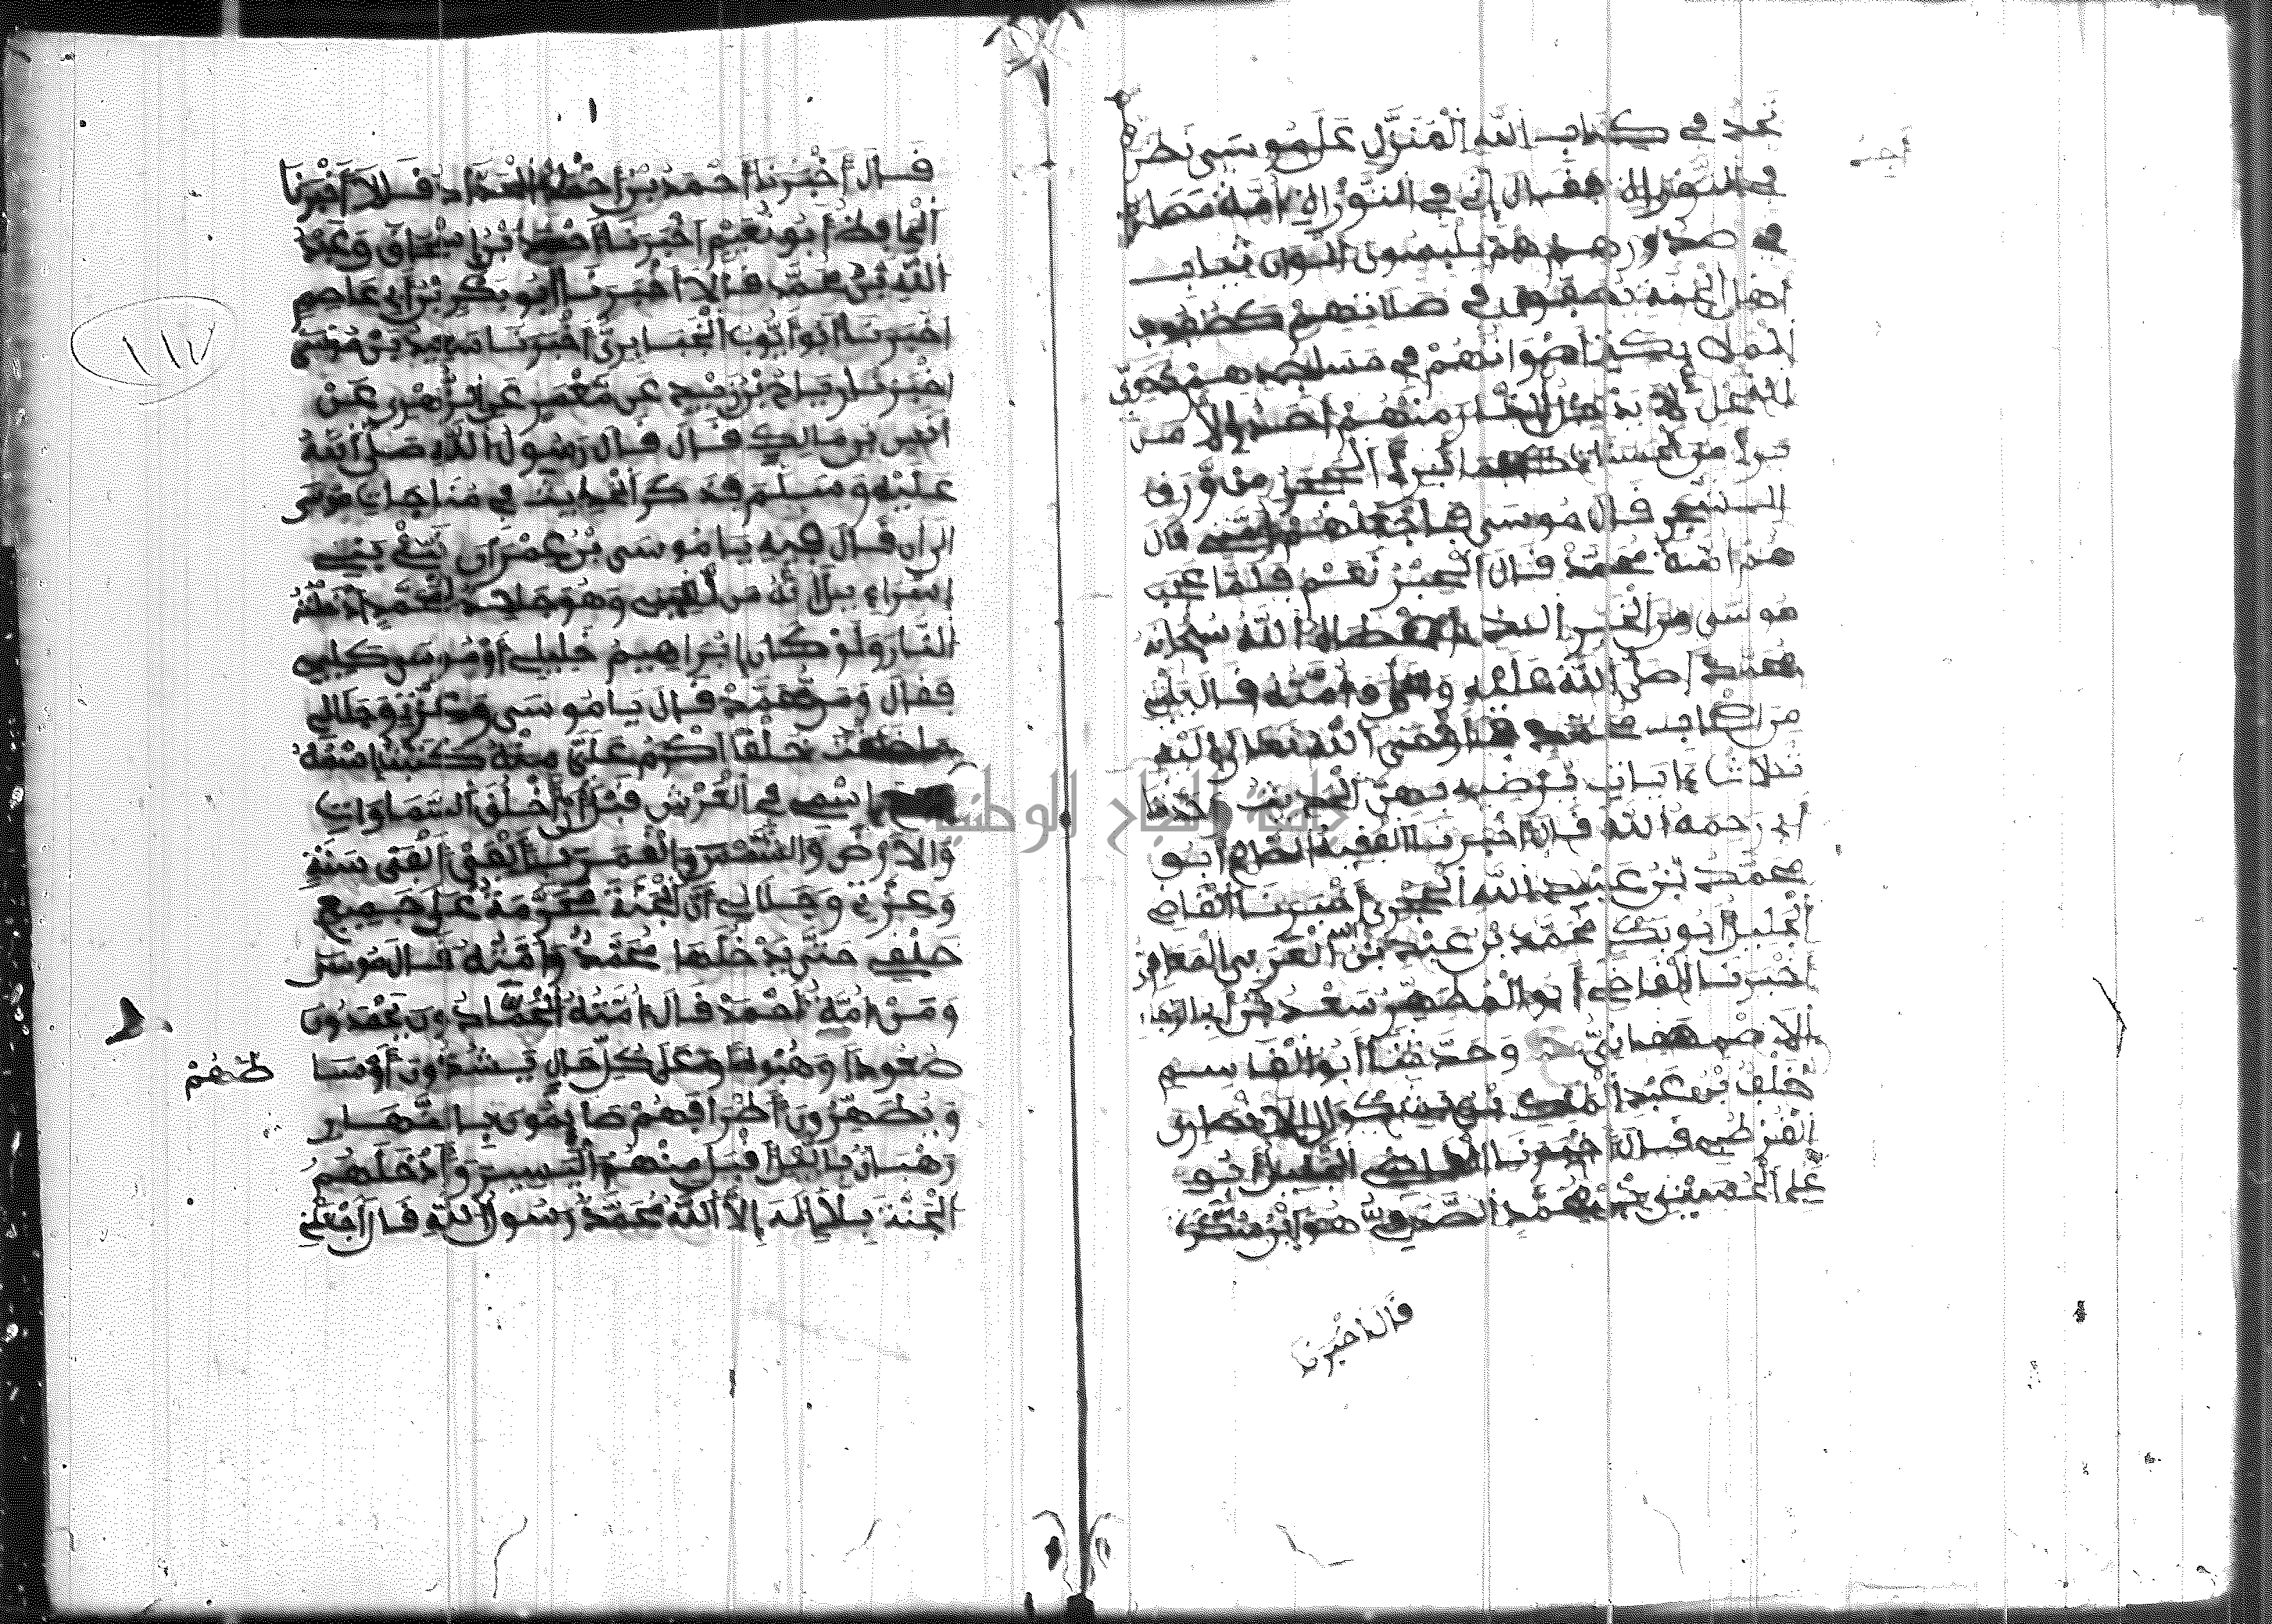 نجد في كتاب الله المنزل على موسى نظر
في التوراة فقال إني في التوراة أمة
في صدورهم يلبسون ألوان ثياب
أهل الجنة يصفون في صلاتهم كصفوف
الملائكة أصواتهم في مساجدهم كدوي
النحل لا يدخل النار منهم أحد إلا من
الحجر من ورق
الشجر قال موسى فاجعلهم أمتي قال
هم أمة محمد قال الحبر نعم فلما عجب
موسى من الخير الذي أعطاه الله سبحانه
محمدا صلى الله عليه وسلم وأمته قال يليتني
من أصحاب محمد فأوحى الله تعالى إليه
ثلاث آيات يرضيه بهن الحديث حدثنا
أبي رحمه الله قال أخبرنا الفقيه أبو
محمد بن عبيد الله الحجري أخبرنا القاضي
الجليل أبو بكر محمد بن عبد الله بن العربي المعافري
أخبرنا القاضي أبو المطهر سعد بن
الاصبهاني وحدثنا أبو القاسم
خلف بن عبد الملك بن بشكوال الانصاري
القرطبي قال أخبرنا القاضي الجليل أبو
علي الحسين بن محمد الصدفي هو ابن سكرة
قال أخبرنا
قال أخبرنا أحمد بن أحمد الحداد قال أخبرنا
الحافظ أبو نعيم أخبرنا أحمد بن إسحاق وعبد
الله بن محمد قالا أخبرنا أبو بكر بن أبي عاصم
أخبرنا أبو أيوب الخبايري أخبرنا سعيد بن موسى
أخبرنا رباح بن زيد عن معمر عن الزهري عن
أنس بن مالك قال قال رسول الله صلى الله
عليه وسلم فذكر الحديث في مناجات موسى
إلى أن قال فيه يا موسى بن عمران نبئ بني
إسراءيل أنه من لقيني وهو جاحد لمحمد أدخلته
النار ولو كان إبراهيم خليلي أو موسى كليمي
فقال ومن محمد قال يا موسى وعزتي وجلالي
ما خلقت خلقا أكرم علي منه كتبت اسمه
مع اسمي في العرش قبل أن أخلق السماوات
والارض والشمس والقمر بألفي ألفي سنة
وعزتي وجلالي إن الجنة محرمة على جميع
خلقي حتى يدخلها محمد وأمته قال موسى
ومن أمة أحمد قال أمته الحمادون يحمدون
صعودا وهبوطا وعلى كل حال يشدون أوسا
طهم
ويطهرون أطرافهم صايمون بالنهار
رهبان بالليل أقبل منهم اليسير وأدخلهم
الجنة بلا إله إلا الله محمد رسول الله قال اجعلني
١١٧
جامعة النجاح الوطنية